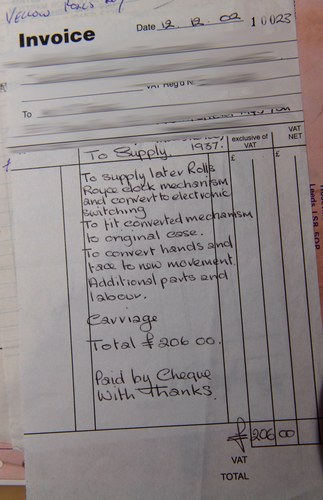 Yellow
Date 12. 12. 02 10023
Invoice
To
exclusive of VAT
VAT NET
To Supply. 1937.
£ £
To supply later Rolls
Royce clock mechanism
and convert to electronic
switching
To fit converted mechanism
to original case.
To convert hands and
face to new movement.
Additional parts and
labour.
Carriage
Total £206 00.
Paid by Cheque
With Thanks.
£ 206 00
VAT
TOTAL